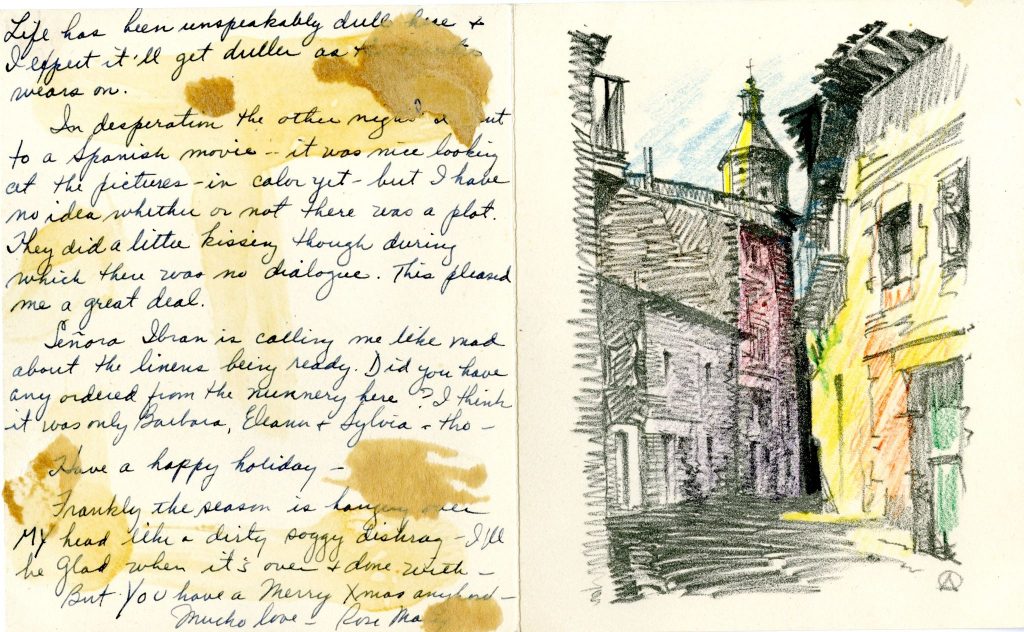 Life has been unspeakably dull here &
I expect it'll get duller as
wears on.
In desperation the other night I went
to a Spanish movie - it was nice looking
at the pictures - in color yet - but I have
no idea whether or not there was a plot.
They did a little kissing though during
which there was no dialogue. This pleased
me a great deal.
Señora Ibran is calling me like mad
about the linens being ready. Did you have
any ordered from the nunnery here? I think
it was only Barbara, Eleanor & Sylvia - tho -
Have a happy holiday -
Frankly the season is hanging over
MY head like a dirty soggy dishrag - I'll
be glad when it's over & done with -
But YOU have a Merry Xmas anyhow -
Mucho love - Rose